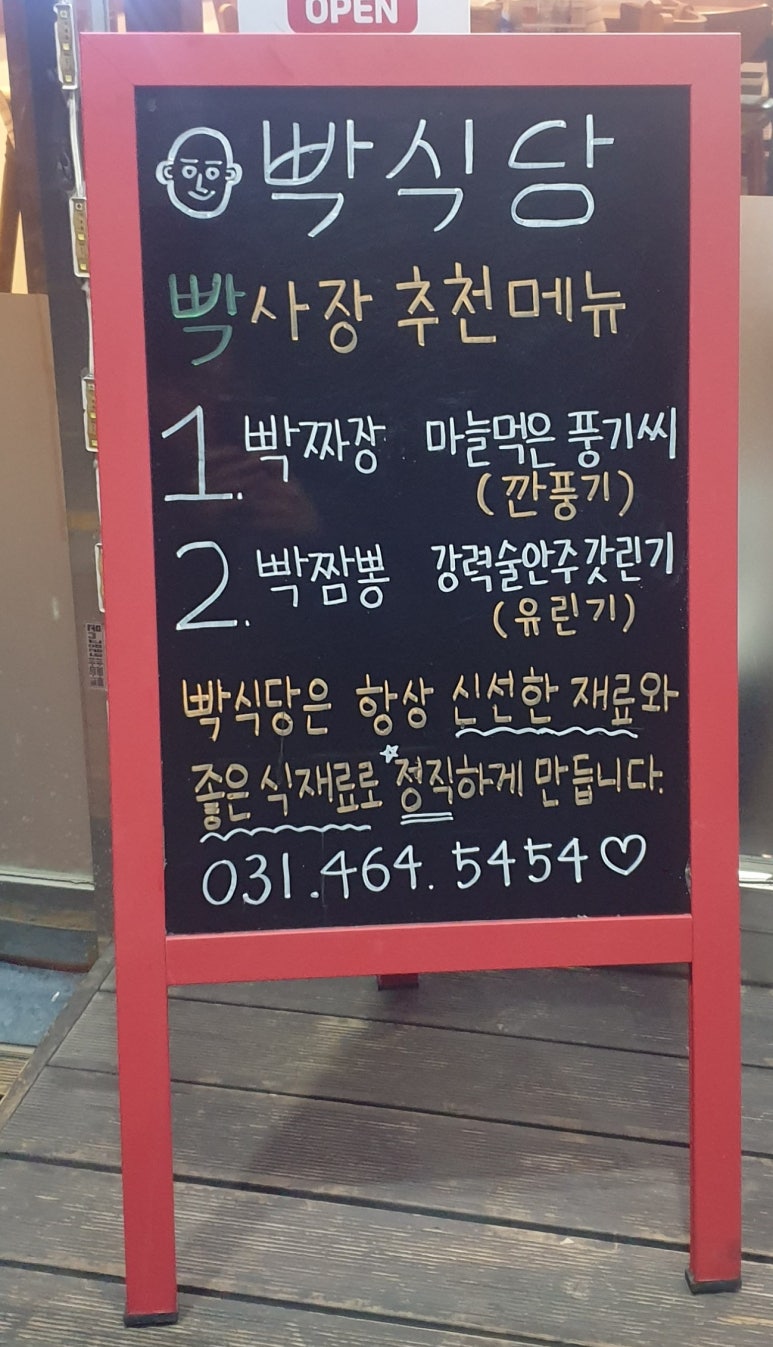 OPEN
빡식당
빡사장 추천메뉴
1. 빡짜장 마늘먹은 풍기씨
(깐풍기)
2. 빡짬뽕 강력술안주갓린기
(유린기)
빡식당은 항상 신선한 재료와
좋은 식재료로 정직하게 만듭니다.
031.464.5454♡